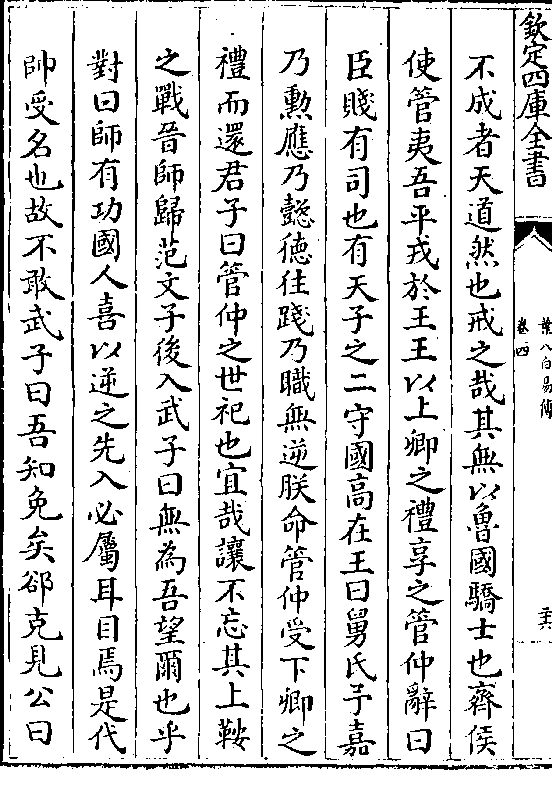 欽定四庫全書
葉八白易傳
卷四
不成者天道然也戒之哉其無以魯國驕士也齊侯
使管夷吾平戎於王王以上卿之禮享之管仲辭曰
臣賤有司也有天子之二守國高在王曰舅氏予嘉
乃勲應乃懿徳往踐乃職無逆朕命管仲受下卿之
禮而還君子曰管仲之世祀也宜哉讓不忘其上鞍
之戰晉師歸范文子後入武子曰無為吾望爾也乎
對曰師有功國人喜以逆之先入必屬耳目焉是代
帥受名也故不敢武子曰吾知免矣郤克見公曰